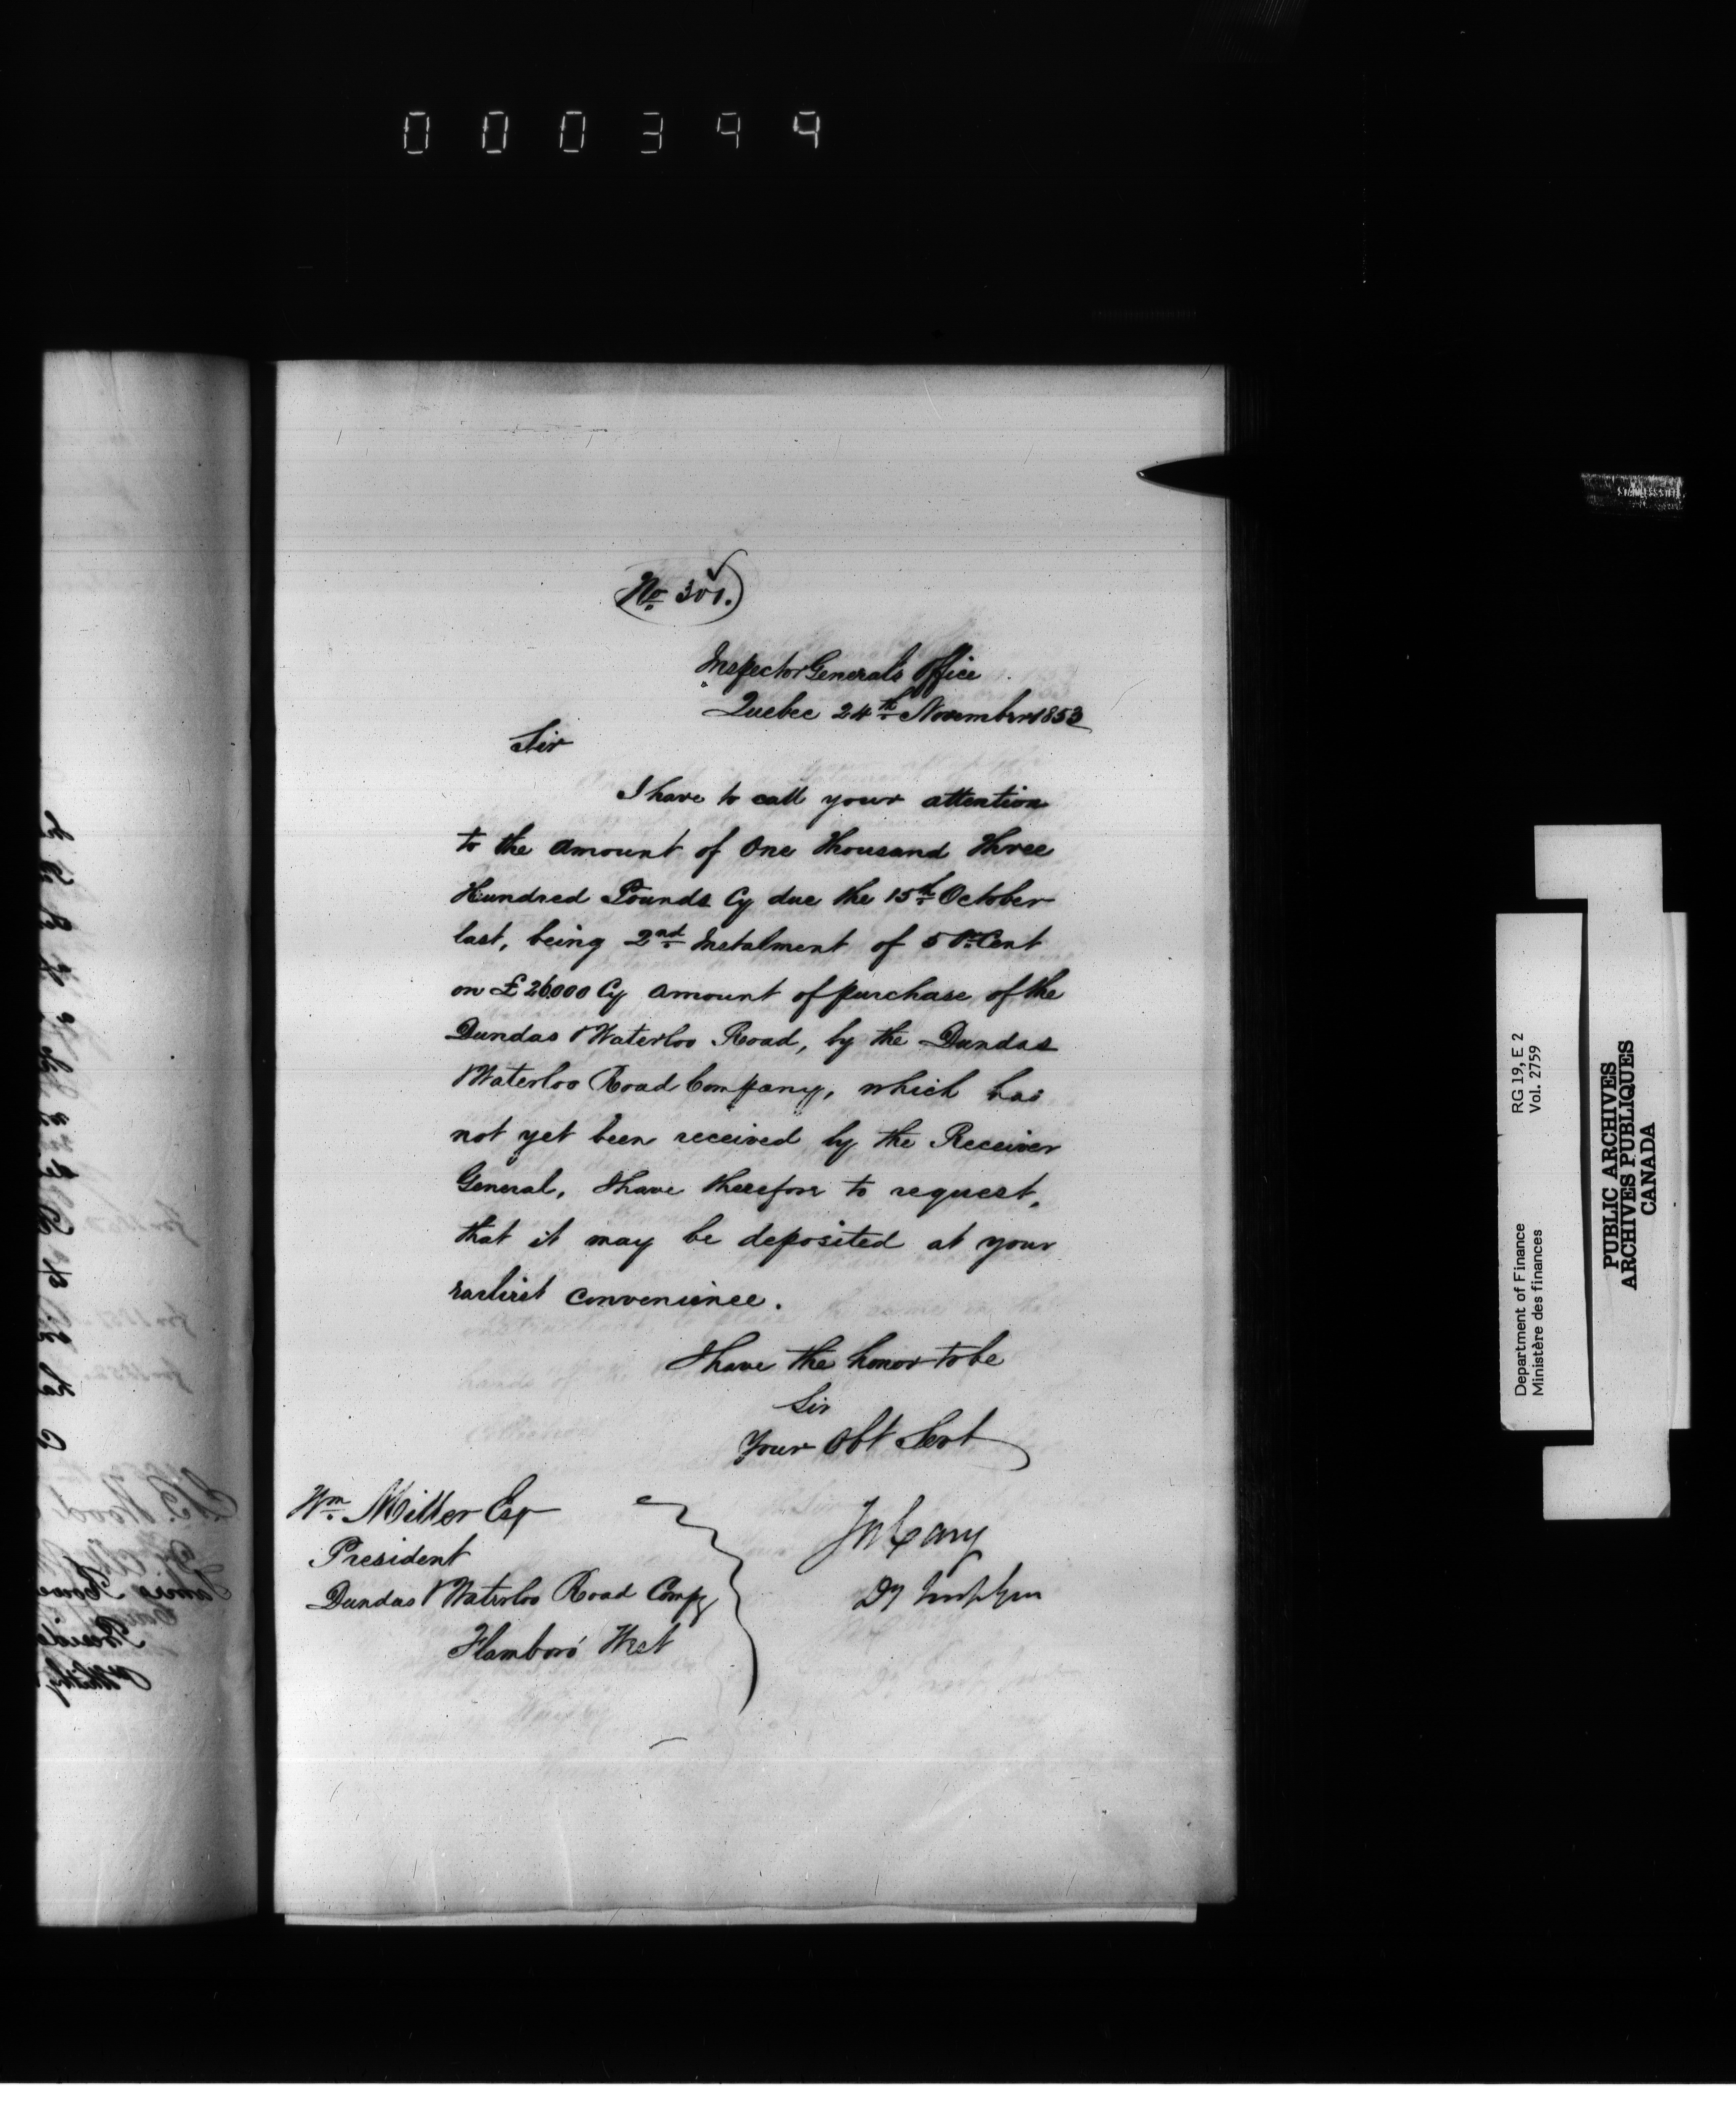 000344
No 301.
Inspector General's Office
Quebec 24th November 1853
Sir
I have to call your attention
to the amount of One Thousand Three
Hundred Pounds Cy due the 15th October
last, being 2nd Instalment of 5 Pr Cent
on £26000 Cy amount of purchase of the
Dundas & Waterloo Road, by the Dundas
& Waterloo Road Company, which has
not yet been received by the Receiver
General, I have therefore to request,
that it may be deposited at your
earliest convenience.
I have the honor to be
Sir
Your Obt Servt
Wm Miller Esqr
President
Dundas & Waterloo Road Compy
Flamboro' West
Jos Cary
Dy Insp Gen
RG 19, E 2
Vol. 2759
Department of Finance
Ministère des finances
PUBLIC ARCHIVES
ARCHIVES PUBLIQUES
CANADA